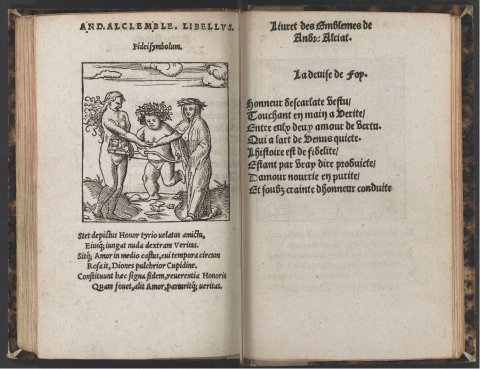 AND. ALC. EMBLE. LIBELLVS.
Fidei symbolum.
Stet depictus Honor tyrio velatus amictu,
Eiusq; iungat nuda dextram Veritas.
Sitq; Amor in medio castus, cui tempora circum
Rosa it, Diones pulchrior Cupidine.
Constituunt hæc signa fidem, reuerentia Honoris
Quam fouet, alit Amor, parturitq; veritas.
Liuret des Emblemes de
Andr: Alciat.
La deuise de Foy.
Honneur descarlate vestu/
Touchant en main a Verite/
Entre eulx deux amour de vertu.
Qui a lart de Venus quicte.
Lhistoire est de fidelite/
Estant par vray dire produicte/
Damour nourrie en purite/
Et soubz crainte dhonneur conduite